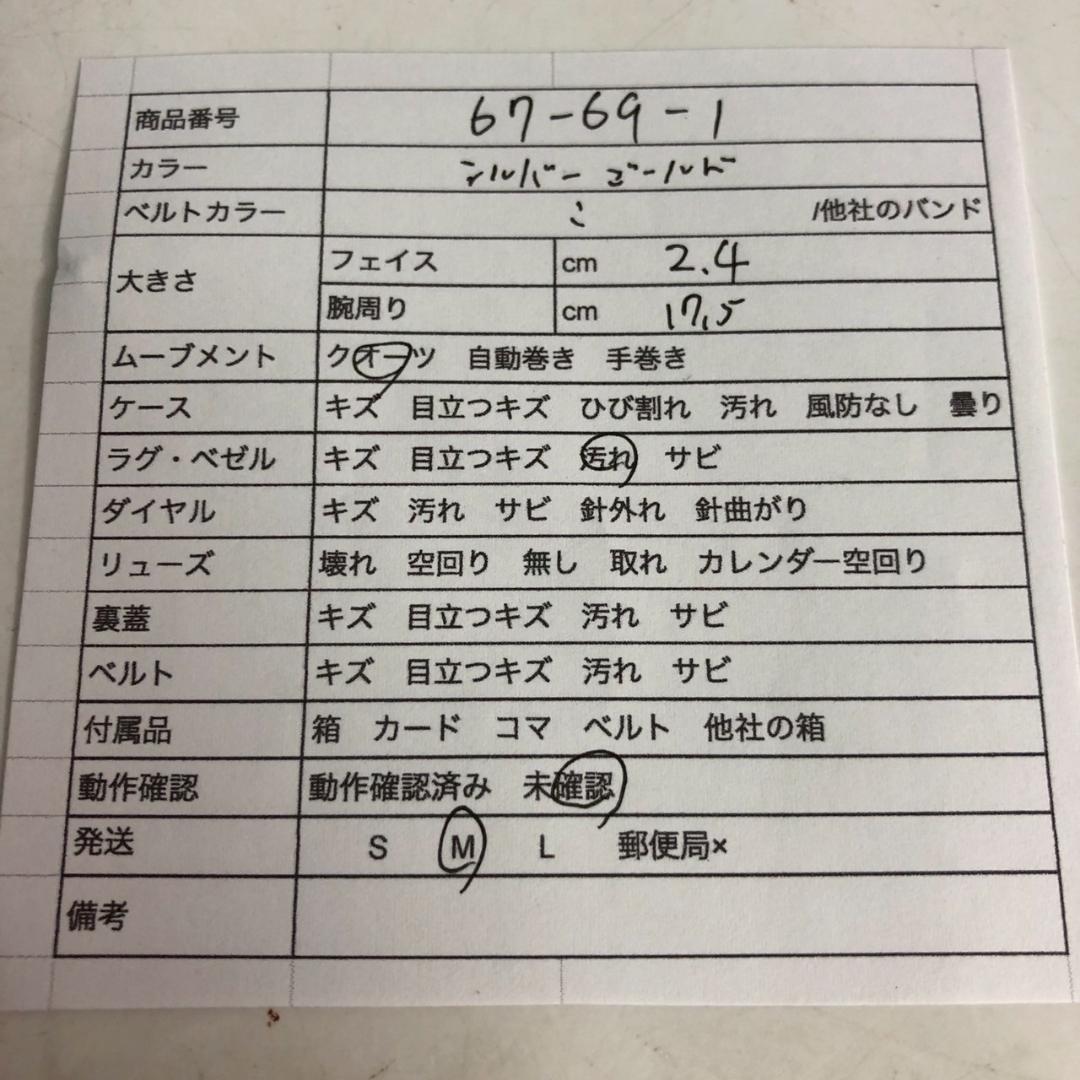 商品番号 67-69-1
カラー シルバー ゴールド
ベルトカラー /他社のバンド
大きさ フェイス cm 2.4
腕周り cm 17.5
ムーブメント クオーツ 自動巻き 手巻き
ケース キズ 目立つキズ ひび割れ 汚れ 風防なし 曇り
ラグ・ベゼル キズ 目立つキズ 汚れ サビ
ダイヤル キズ 汚れ サビ 針外れ 針曲がり
リューズ 壊れ 空回り 無し 取れ カレンダー空回り
裏蓋 キズ 目立つキズ 汚れ サビ
ベルト キズ 目立つキズ 汚れ サビ
付属品 箱 カード コマ ベルト 他社の箱
動作確認 動作確認済み 未確認
発送 S M L 郵便局×
備考